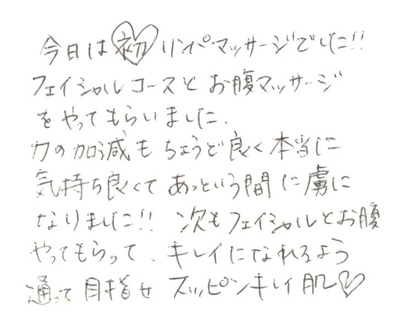 今日は初リンパマッサージでした!!
フェイシャルコースとお腹マッサージ
をやってもらいました.
力の加減もちょうど良く本当に
気持ち良くてあっという間に虜に
なりました!! 次もフェイシャルとお腹
やってもらって、キレイになれるよう
通って目指せ スッピンキレイ肌♡